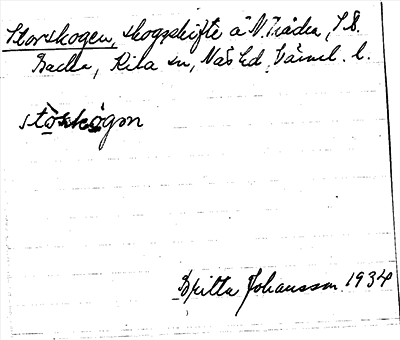 Storskogen, skogskifte å N. Treskog, S.B.
Backa, Kila sn, Näs hd, Värml. l.
stòskògɘn
Britta Johansson 1934